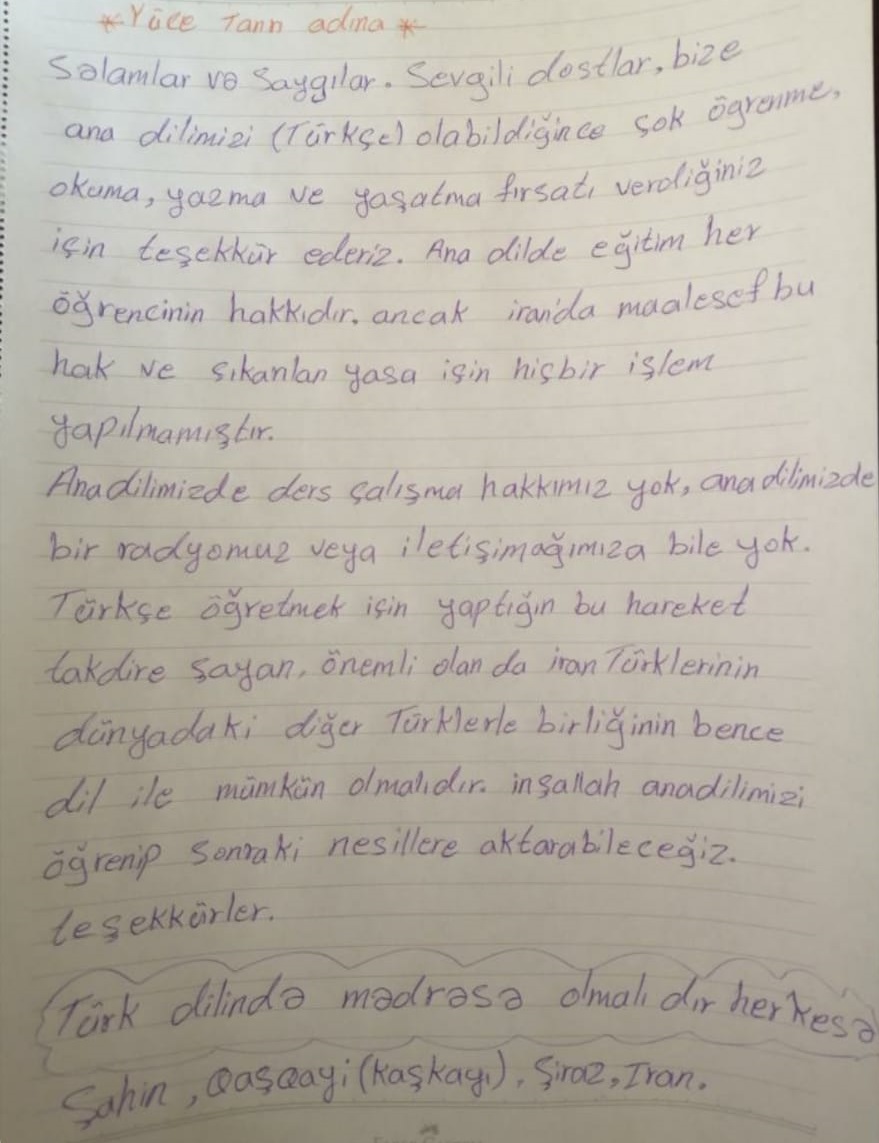 *Yüce Tanrı adına*
Səlamlar və Saygılar. Sevgili dostlar, bize
ana dilimizi (Türkçe) olabildiğince çok öğrenme,
okuma, yazma ve yaşatma fırsatı verdiğiniz
için teşekkür ederiz. Ana dilde eğitim her
öğrencinin hakkıdır. ancak iran'da maalesef bu
hak ve çıkarılan yasa için hiçbir işlem
yapılmamıştır.
Anadilimizde ders çalışma hakkımız yok, anadilimizde
bir radyomuz veya iletişimağımıza bile yok.
Türkçe öğretmek için yaptığın bu hareket
takdire şayan, önemli olan da iran Türklerinin
dünyadaki diğer Türklerle birliğinin bence
dil ile mümkün olmalıdır. inşallah anadilimizi
öğrenip sonraki nesillere aktarabileceğiz.
teşekkürler.
Türk dilində mədrəsə olmalıdır herkesə
Şahin, Qaşqayi (Kaşkayı), Şiraz, Iran.